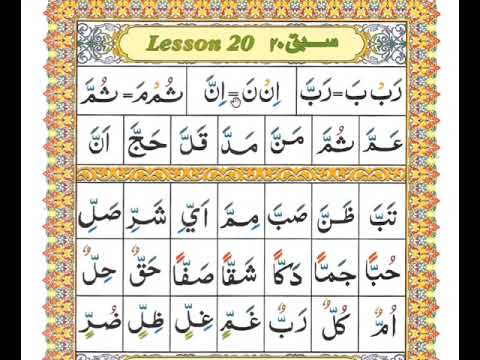 Lesson 20 سبق ۲۰
رَبْ بَ=رَبَّ اِنْ نَ=اِنَّ ثُمْ مَ=ثُمَّ
عَمَّ ثُمَّ مَنَّ مَدَّ قَلَّ حَجَّ اَنَّ
تَبَّ ظَنَّ صَبَّ مِمَّ اَيِّ شَرِّ صَلِّ
حُبًّا جَمًّا دَكًّا شَقًّا صَفًّا حَقٌّ حِلٌّ
اُمٌّ كُلٌّ رَبٌّ غَمٍّ غِلٍّ ظِلٍّ ضُرٍّ